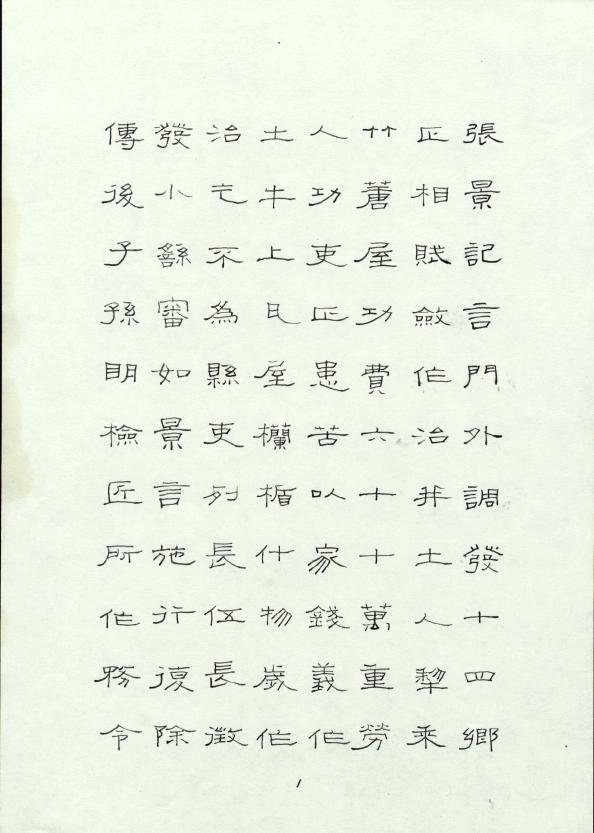 張景記言門外調發十四鄉
正相賦斂作治并土人犁耒
艸蓎屋功費六十十萬重勞
人功吏正患苦以家錢義作
土牛上瓦屋欄楯什物歲作
治乞不為縣吏列長伍長徵
發小繇審如景言施行復除
傳後子孫明檢匠所作務令
1